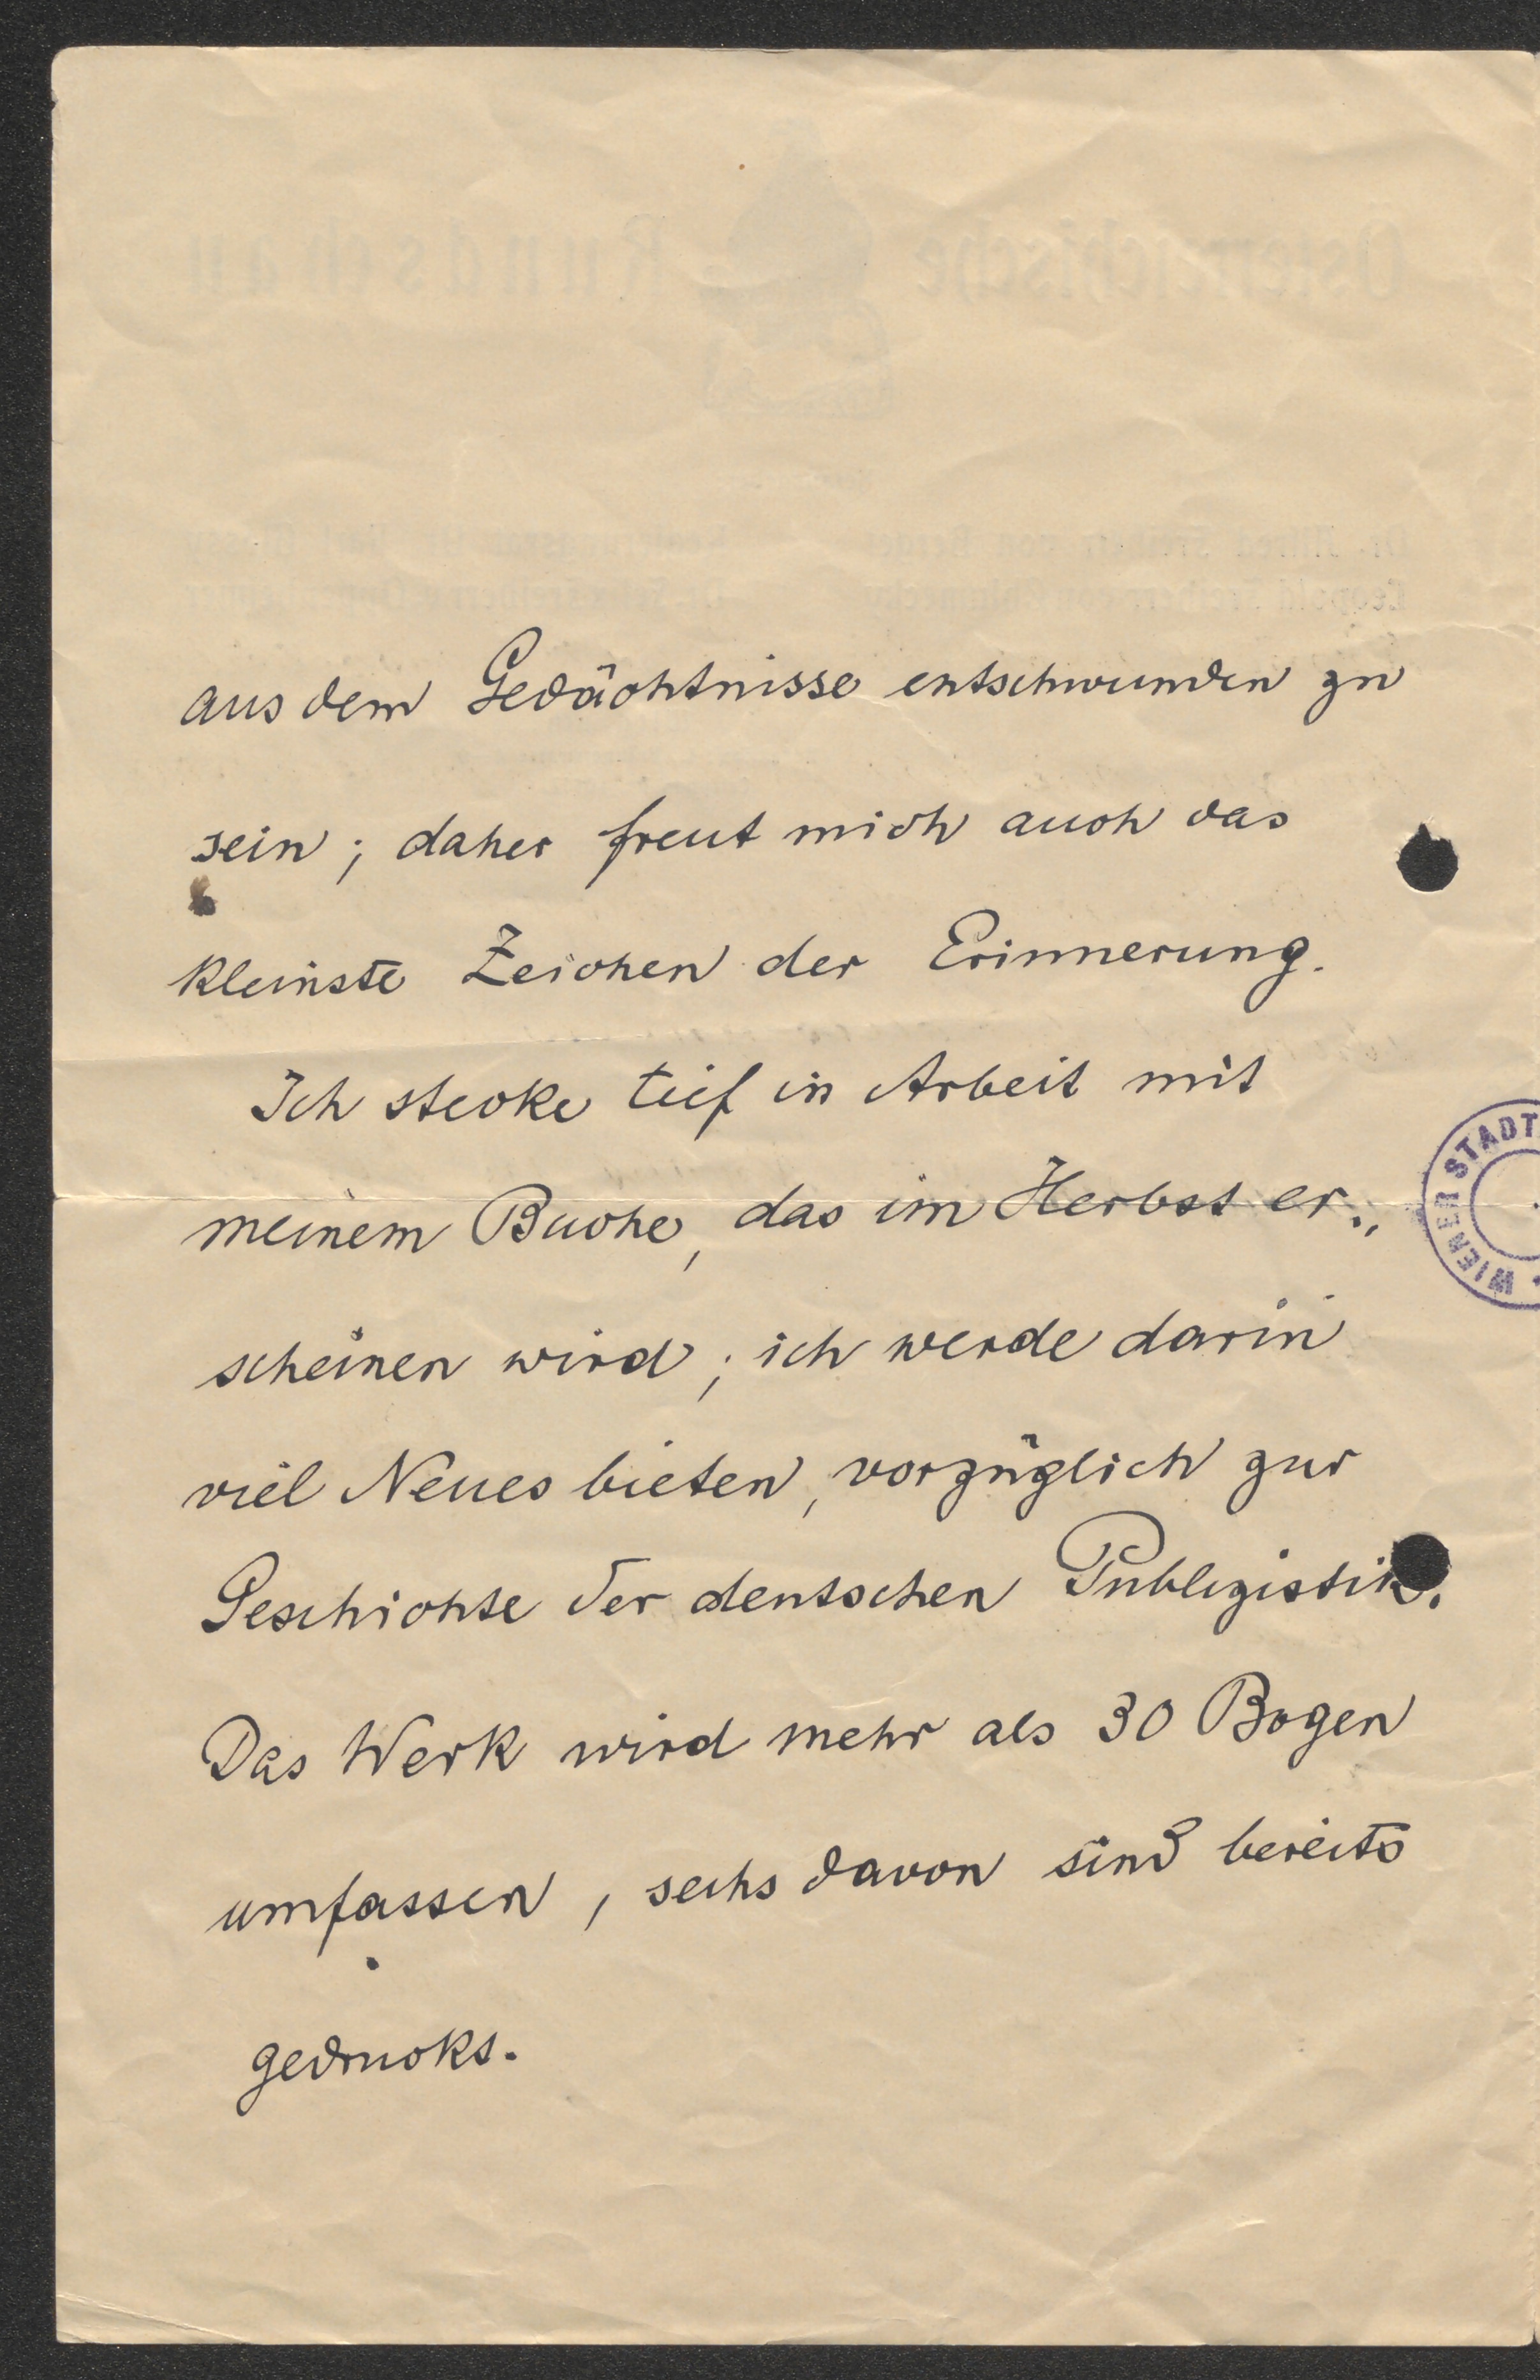 aus dem Gedächtnisse entschwunden zu
sein; daher freut mich auch das
kleinste Zeichen der Erinnerung.
Ich stecke tief in Arbeit mit
meinem Buche, das im Herbst er-
scheinen wird; ich werde darin
viel Neues bieten, vorzüglich zur
Geschichte der deutschen Publizistik.
Das Werk wird mehr als 30 Bogen
umfassen, sechs davon sind bereits
gedruckt.
WIENER STADT
Österreichische Rundschau